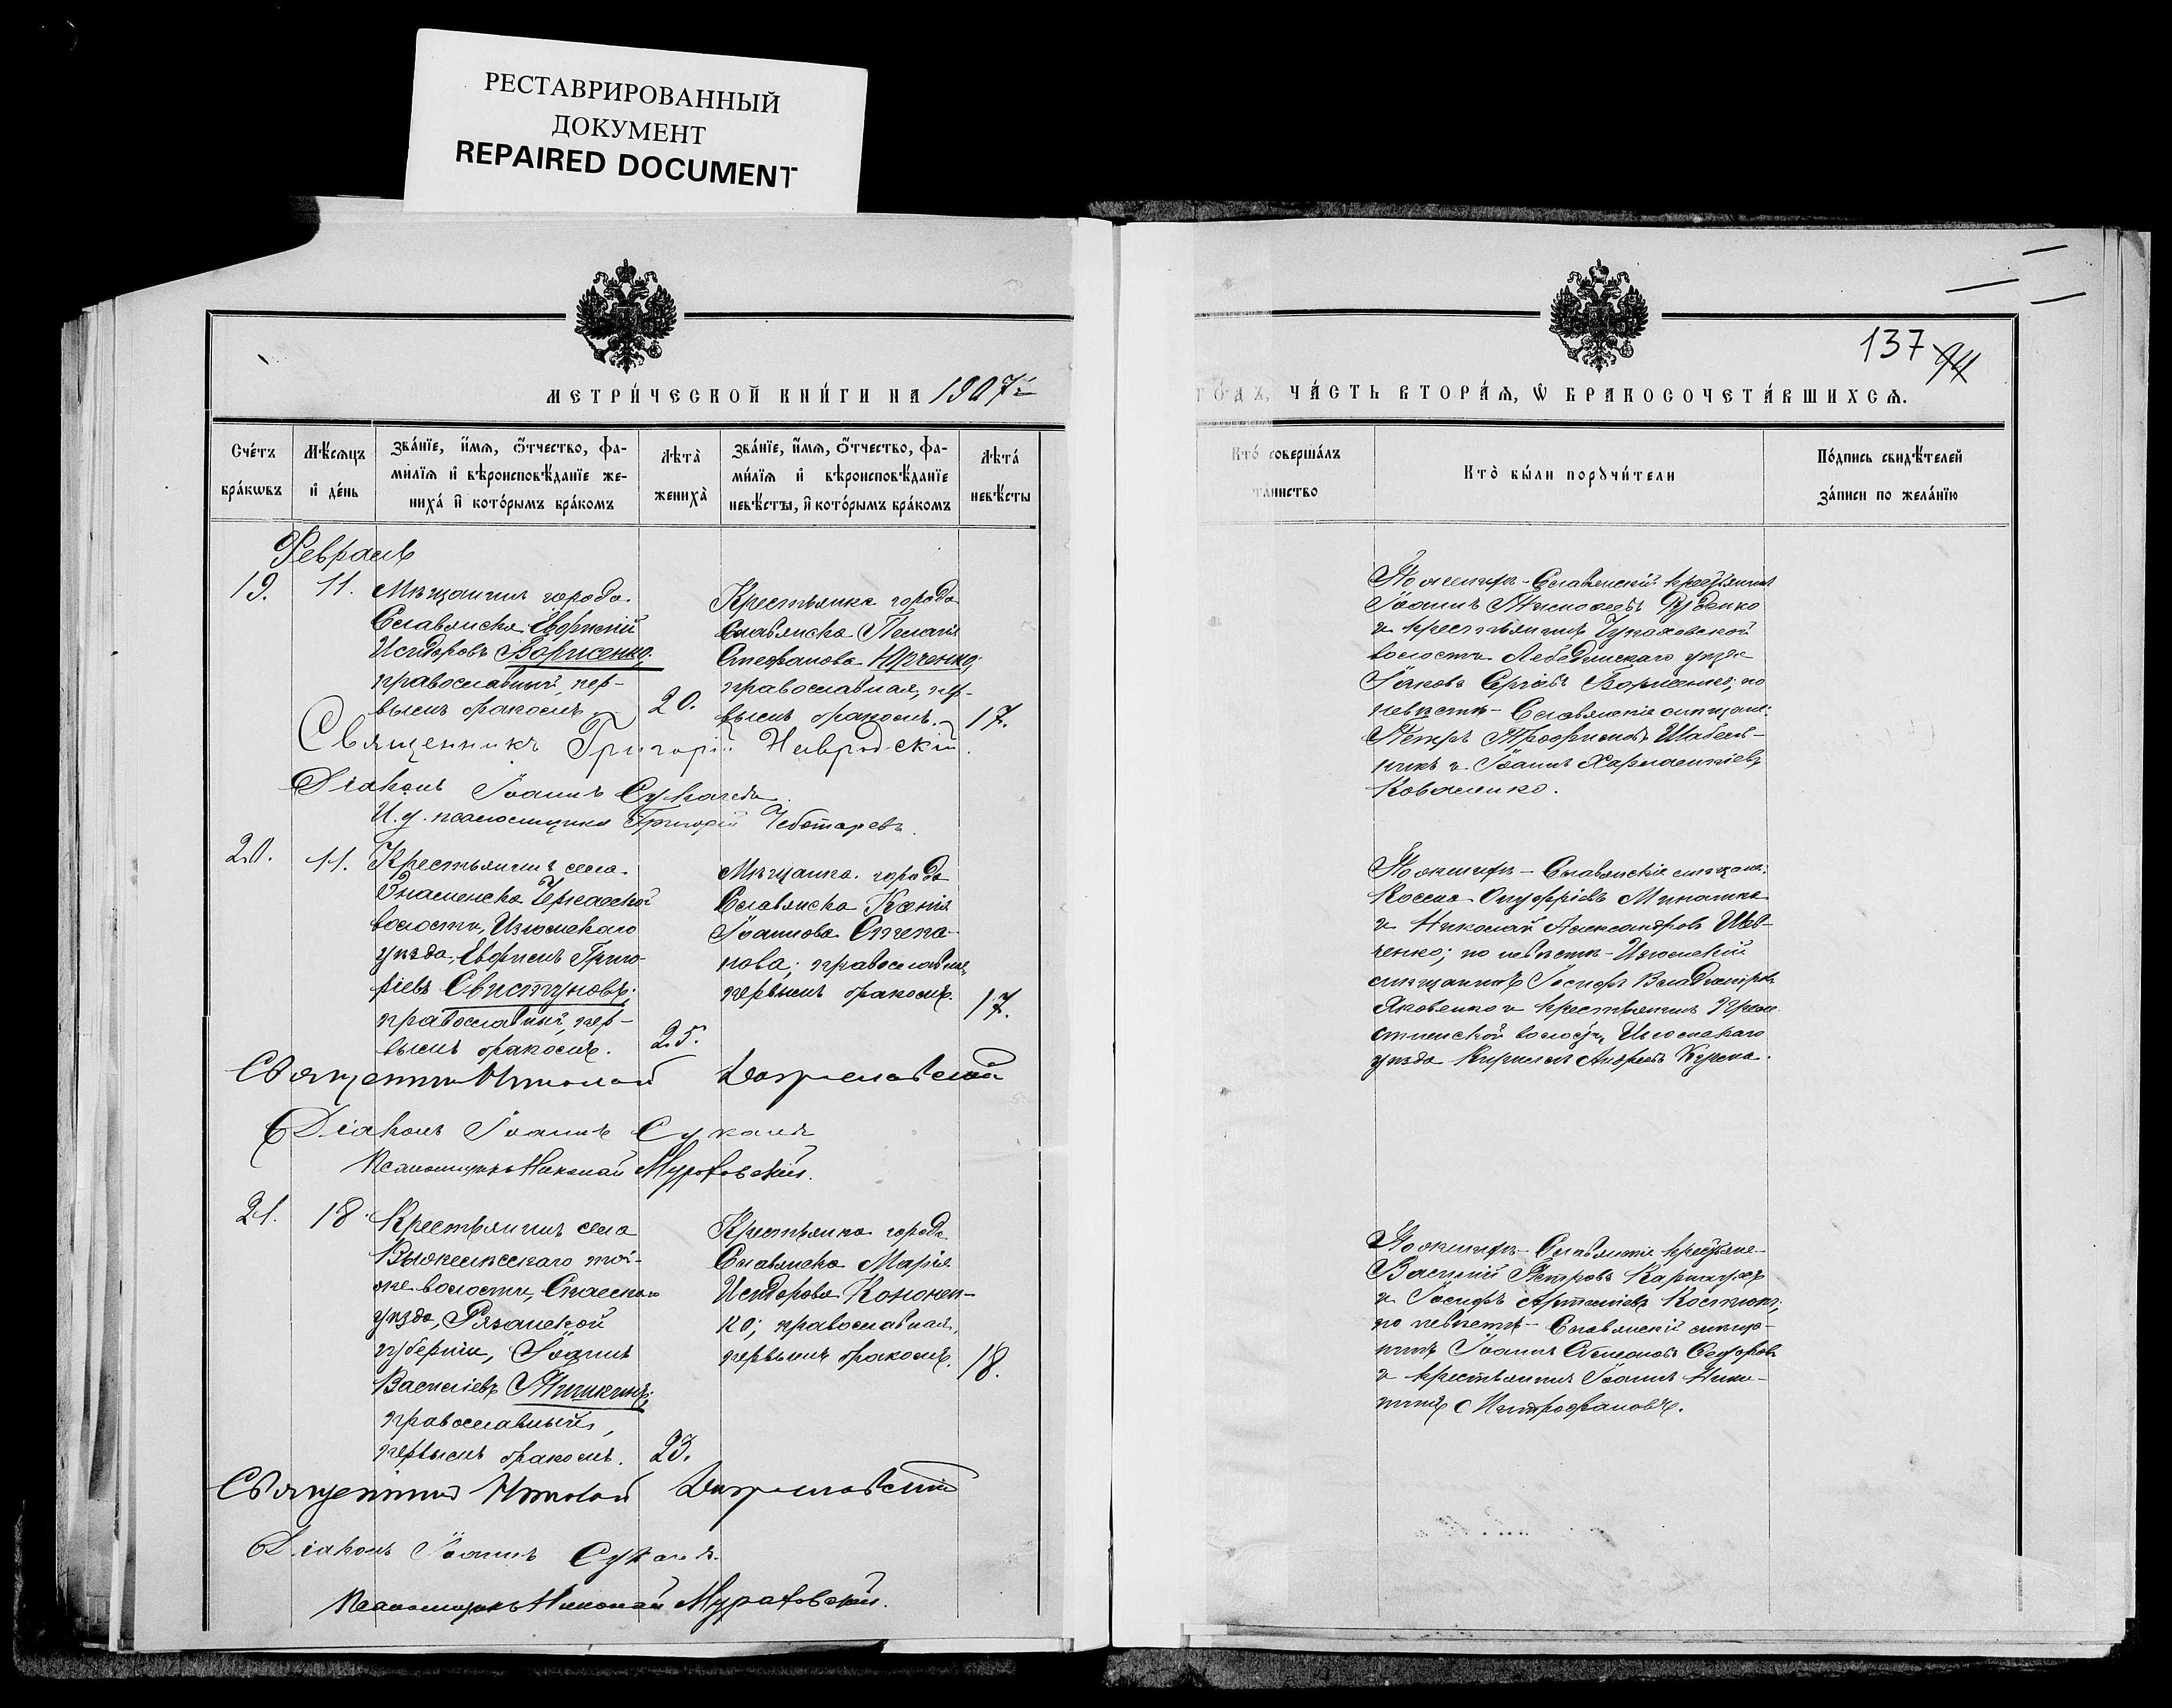 РЕСТАВРИРОВАННЫЙ
ДОКУМЕНТ
REPAIRED DOCUMENT
МЕТРИ́ЧЕСКОЙ КНИ́ГИ НА 1907
ГО́ДЪ, ЧА́СТЬ ВТОРА́Ѧ, Ѡ БРАКОСОЧЕТА́ВШИХСѦ.
137
94
Сче́тъ
бра́кѡвъ
Мѣ́сѧцъ
и҆ де́нь
Зва́нїе, и҆́мѧ, ѻ҆́тчество, фа-
ми́лїѧ и҆ вѣроисповѣ́данїе же-
ниха̀ и҆ кото́рымъ бра́комъ
Лѣ́та
жениха̀
Зва́нїе, и҆́мѧ, ѻ҆́тчество, фа-
ми́лїѧ и҆ вѣроисповѣ́данїе
невѣ́сты, и҆ кото́рымъ бра́комъ
Лѣ́та
невѣ́сты
Кто̀ соверша́лъ
та́инство
Кто̀ бы́ли порꙋчи́тели
По́дпись свидѣ́телей
за́писи по жела́нїю
Февраль
19.
11.
Мѣщанинъ города
Славянска Евфимій
Исидоровъ Борисенко;
православный, пер-
вымъ бракомъ.
20.
Крестьянка города
Славянска Пелагія
Стефанова Юрченко;
православная, пер-
вымъ бракомъ.
17.
Священникъ Григорій Навродскій.
Діаконъ Іоаннъ Сукачевъ.
И. д. псаломщика Григорій Чеботаревъ.
По женихѣ - Славянскій крестьянинъ
Іоаннъ Тимофеевъ Руденко
и крестьянинъ Чупаховской
волости Лебединскаго уѣзда
Іаковъ Сергіевъ Борисенко; по
невѣстѣ - Славянскіе мѣщане:
Петръ Трофимовъ Шабель-
никъ и Іоаннъ Харлампіевъ
Коваленко.
20.
11.
Крестьянинъ села
Знаменска Черкасской
волости, Изюмскаго
уѣзда, Евфимъ Григо-
ріевъ Свистуновъ;
православный, пер-
вымъ бракомъ.
25.
Мѣщанка города
Славянска Ксенія
Іоаннова Степа-
нова; православная,
первымъ бракомъ.
17.
Священникъ Николай
Діаконъ Іоаннъ Сукачевъ
Псаломщикъ Николай Муратовскій.
По женихѣ - Славянскіе мѣщане:
Косма Онуфріевъ
и Николай Александровъ Шев-
ченко; по невѣстѣ - Изюмскій
мѣщанинъ Іосифъ Владиміровъ
Яковенко и крестьянинъ
волости, Изюмскаго
уѣзда Кириллъ Андреевъ
21.
18.
Крестьянинъ села
той-
же волости, Спасскаго
уѣзда, Рязанской
губерніи, Іоаннъ
Василіевъ
православный,
первымъ бракомъ.
23.
Крестьянка города
Славянска Марія
Исидорова Кононен-
ко; православная,
первымъ бракомъ.
18.
Священникъ Николай
Діаконъ Іоаннъ Сукачевъ.
Псаломщикъ Николай Муратовскій.
По женихѣ - Славянскіе крестьяне
Василій Петровъ
и Іосифъ Артеміевъ Костюкъ;
по невѣстѣ - Славянскій мѣща-
нинъ Іоаннъ Симеоновъ Сидоровъ
и крестьянинъ Іоаннъ
Митрофановъ.